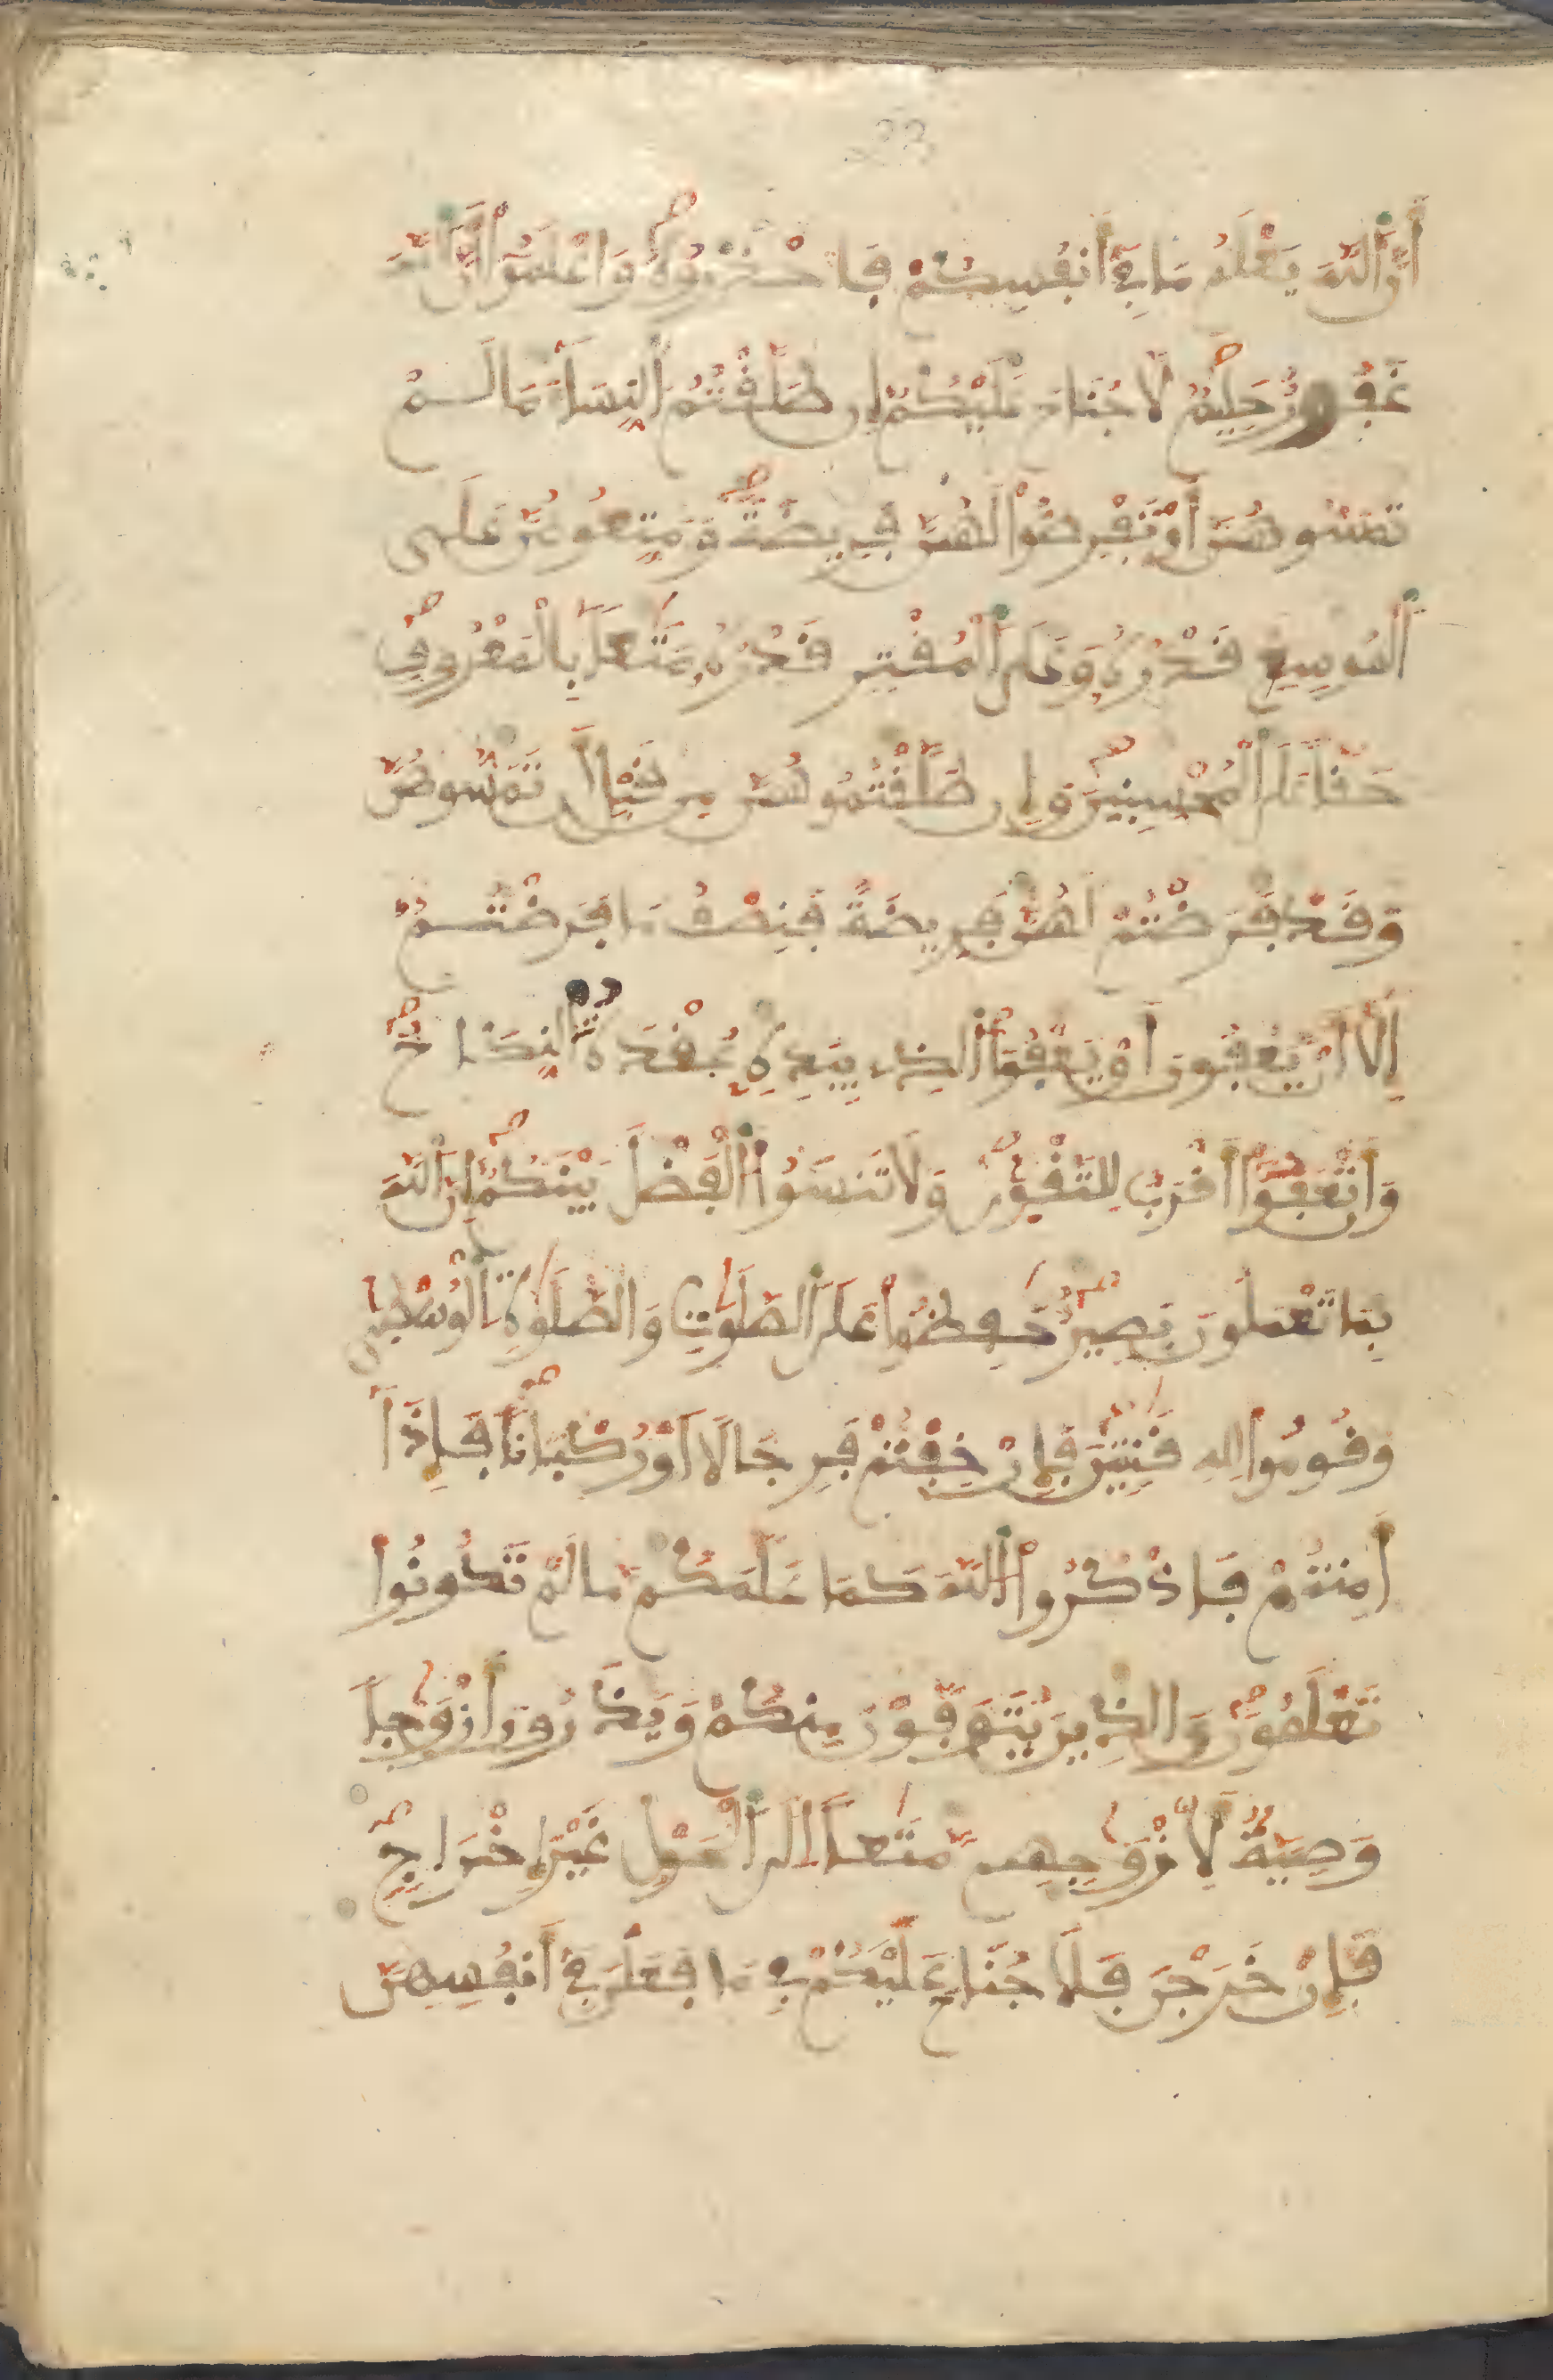 23
أَنَّ اَللَّهَ يَعْلَمُ مَا فِے أَنفُسِكُمْ فَاحْذَرُوهُ وَاعْلَمُوا أَنَّ اَللَّهَ
غَفُورٌ حَلِيمٌ لَا جُنَاحَ عَلَيْكُمْ إِن طَلَّقْتُمُ اَلنِّسَآءَ مَا لَمْ
تَمَسُّوهُنَّ أَوْ تَفْرِضُوا لَهُنَّ فَرِيضَةً وَمَتِّعُوهُنَّ عَلَى
اَلْمُوسِعِ قَدْرُهُ وَعَلَى اَلْمُقْتِرِ قَدْرُهُ مَتَٰعاً بِالْمَعْرُوفِ
حَقّاً عَلَى اَلْمُحْسِنِينَ وَإِن طَلَّقْتُمُوهُنَّ مِن قَبْلِ أَن تَمَسُّوهُنَّ
وَقَدْ فَرَضْتُمْ لَهُنَّ فَرِيضَةً فَنِصْفُ مَا فَرَضْتُمْ
إِلَّا أَنْ يَعْفُونَ أَوْ يَعْفُوَا اَلذِے بِيَدِهِ عُقْدَةُ اُلنِّكَاحِ
وَأَن تَعْفُوا أَقْرَبُ لِلتَّقْوَىٰ وَلَا تَنسَوُا اُلْفَضْلَ بَيْنَكُمْ إِنَّ اَللَّهَ
بِمَا تَعْمَلُونَ بَصِيرٌ حَٰفِظُوا عَلَى اَلصَّلَوَٰتِ وَالصَّلَوٰةِ اِلْوُسْطَىٰ
وَقُومُوا لِلهِ قَٰنِتِينَ فَإِنْ خِفْتُمْ فَرِجَالًا أَوْ رُكْبَاناً فَإِذَا
أَمِنتُمْ فَاذْكُرُوا اُللَّهَ كَمَا عَلَّمَكُم مَّا لَمْ تَكُونُوا
تَعْلَمُونَ وَالذِينَ يُتَوَفَّوْنَ مِنكُمْ وَيَذَرُونَ أَزْوَٰجاً
وَصِيَّةٌ لِّأَزْوَٰجِهِم مَّتَٰعاً إِلَى اَلْحَوْلِ غَيْرَ إِخْرَاجٍ
فَإِنْ خَرَجْنَ فَلَا جُنَاحَ عَلَيْكُمْ فِے مَا فَعَلْنَ فِے أَنفُسِهِنَّ